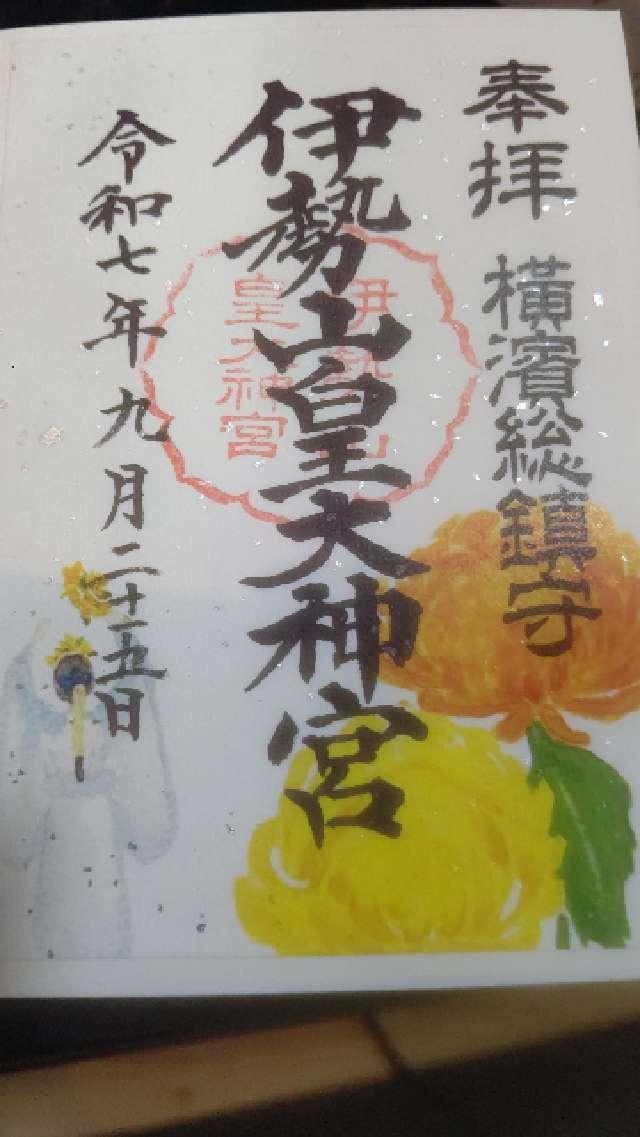 奉拝 橫濱総鎮守
伊勢山皇大神宮
伊勢山
皇大神宮
令和七年九月二十五日